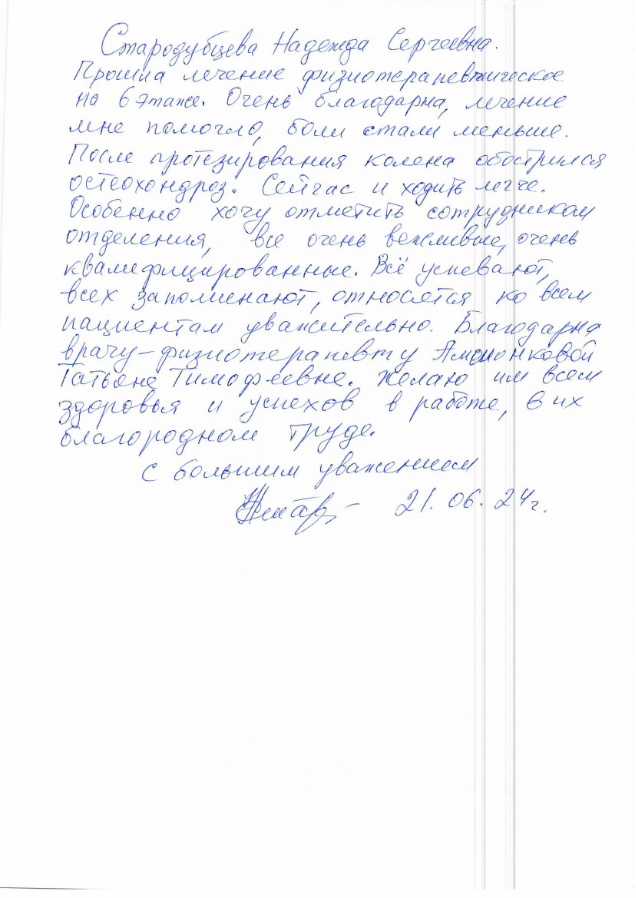 Стародубцева Надежда Сергеевна.
Прошла лечение физиотерапевтическое
на 6 этаже. Очень благодарна, лечение
мне помогло, боли стали меньше.
После протезирования колена обострился
остеохондроз. Сейчас и ходить легче.
Особенно хочу отметить сотрудникам
отделения, все очень вежливые, очень
квалифицированные. Всё успевают,
всех запоминают, относятся ко всем
пациентам уважительно. Благодарна
врачу-физиотерапевту
Татьяне Тимофеевне. Желаю им всем
здоровья и успехов в работе, в их
благородном труде.
С большим уважением
21.06.24г.